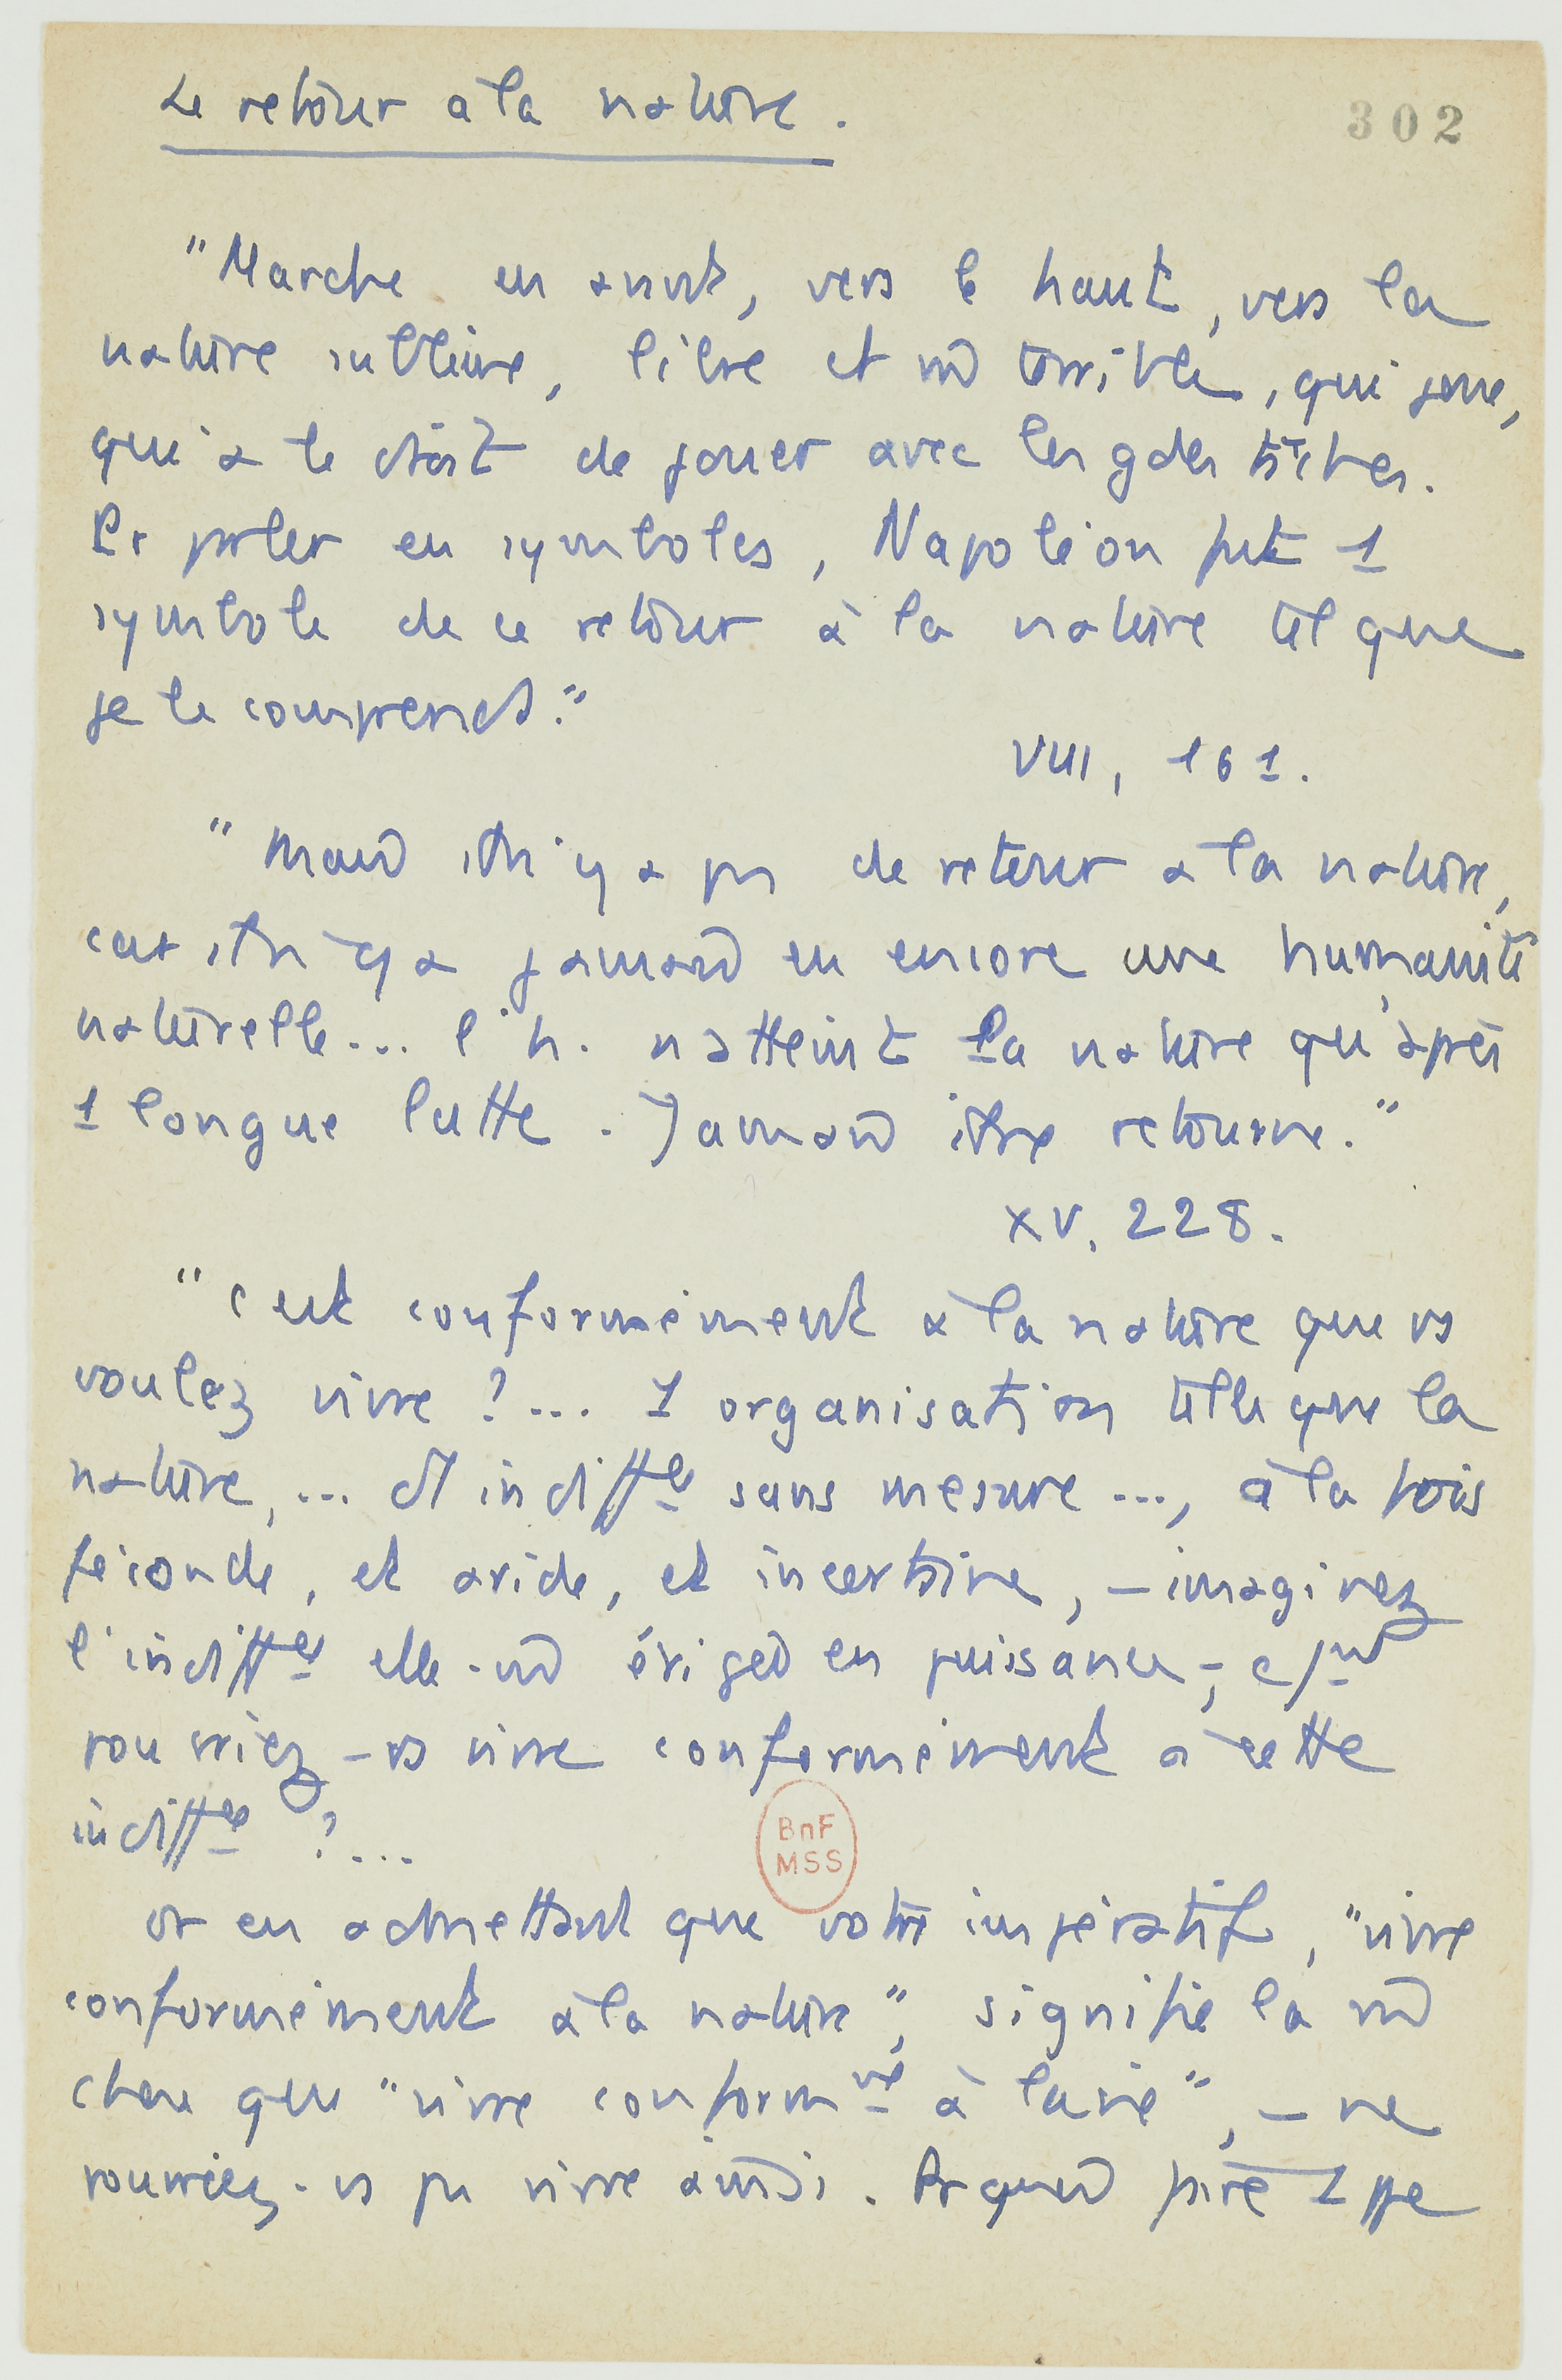 Le retour à la nature.
302
"Marche en avant, vers le haut, vers la
nature sublime, libre et m̂ terrible, qui joue,
qui a le droit de jouer avec les gdes tâches.
Pr parler en symboles, Napoléon fut 1
symbole de ce retour à la nature tel que
je le comprends."
VIII, 161.
"Mais il n'y a pas de retour à la nature,
car il n'y a jamais eu encore une humanité
naturelle... l'h. n'atteint la nature qu'après
1 longue lutte. Jamais il ne retourne."
XV, 228.
"C'est conformément à la nature que vs
voulez vivre ?... 1 organisation telle que la
nature, ... indiffte sans mesure..., à la fois
féconde, et aride, et incertaine, – imaginez
l'indiffce elle-m̂ érigée en puissance –,
pourriez-vs vivre conformément à cette
indiffce ?...
BnF
MSS
Or en admettant que votre impératif, "vivre
conformément à la nature", signifie la m̂
chose que "vivre conformmt à la vie", – ne
pourriez-vs pas vivre ainsi. Pr quoi faire 1 ppe